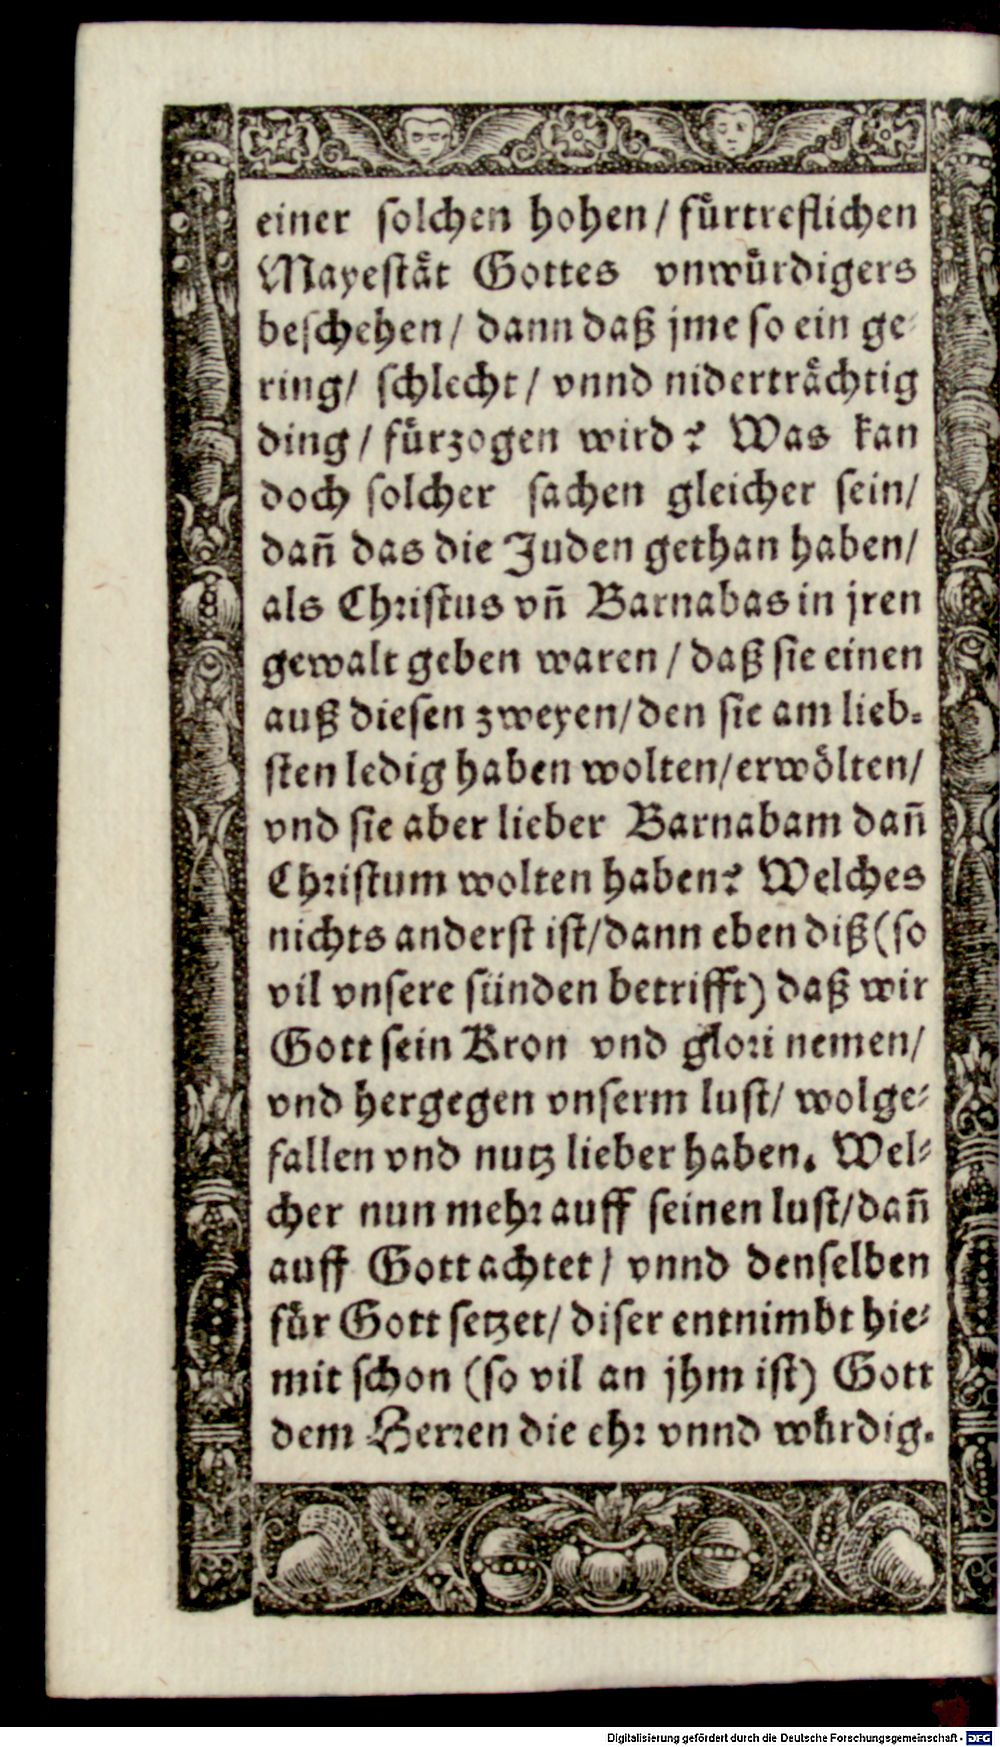 einer solchen hohen / fürtreflichen
Mayestät Gottes vnwürdigers
beschehen / dann daß jme so ein ge-
ring / schlecht / vnnd niderträchtig
ding / fürzogen wird? Was kan
doch solcher sachen gleicher sein /
dañ das die Juden gethan haben /
als Christus vñ Barnabas in jren
gewalt geben waren / daß sie einen
auß diesen zweyen / den sie am lieb-
sten ledig haben wolten / erwölten /
vnd sie aber lieber Barnabam dañ
Christum wolten haben? Welches
nichts anderst ist / dann eben diß (so
vil vnsere sünden betrifft) daß wir
Gott sein Kron vnd glori nemen /
vnd hergegen vnserm lust / wolge-
fallen vnd nutz lieber haben. Wel-
cher nun mehr auff seinen lust / dañ
auff Gott achtet / vnnd denselben
für Gott setzet / diser entnimbt hie-
mit schon (so vil an jhm ist) Gott
dem Herren die ehr vnnd würdig-
Digitalisierung gefördert durch die Deutsche Forschungsgemeinschaft - DFG